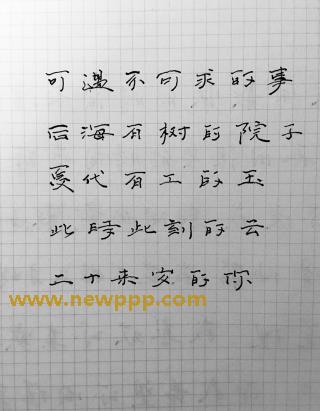 可遇不可求的事
后海有树的院子
夏代有工的玉
此时此刻的云
二十来岁的你
www.newppp.com